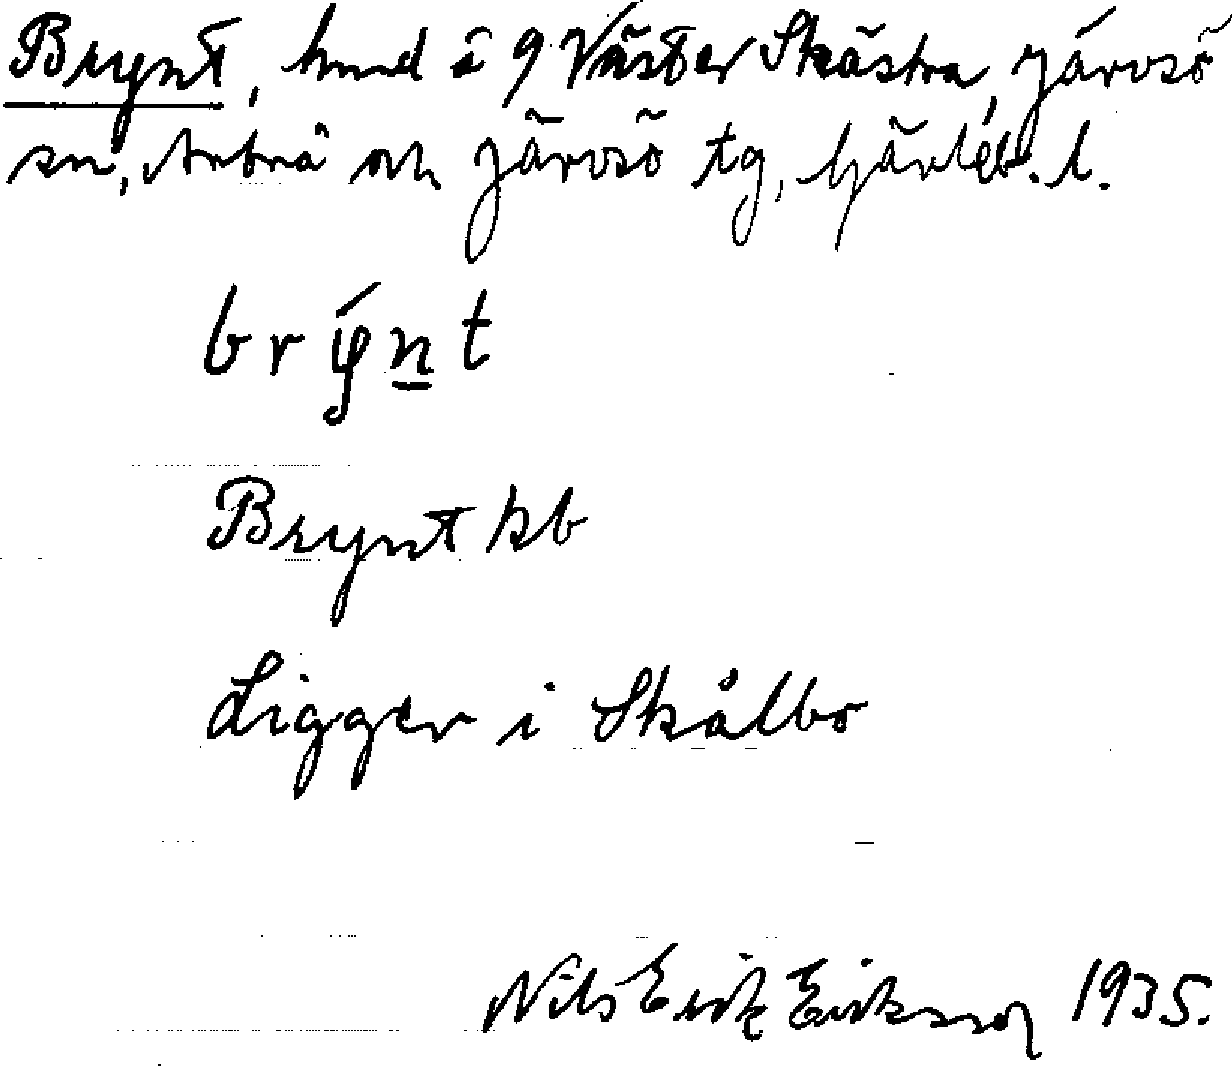 Brynt, hmd å 9 Väster Skästra, Järvsö
sn, Arbrå och Järvsö tg, Gävleb. l.
brýn̲t
Brynt kb
Ligger i Skålbo
Nils Erik Eriksson 1935.